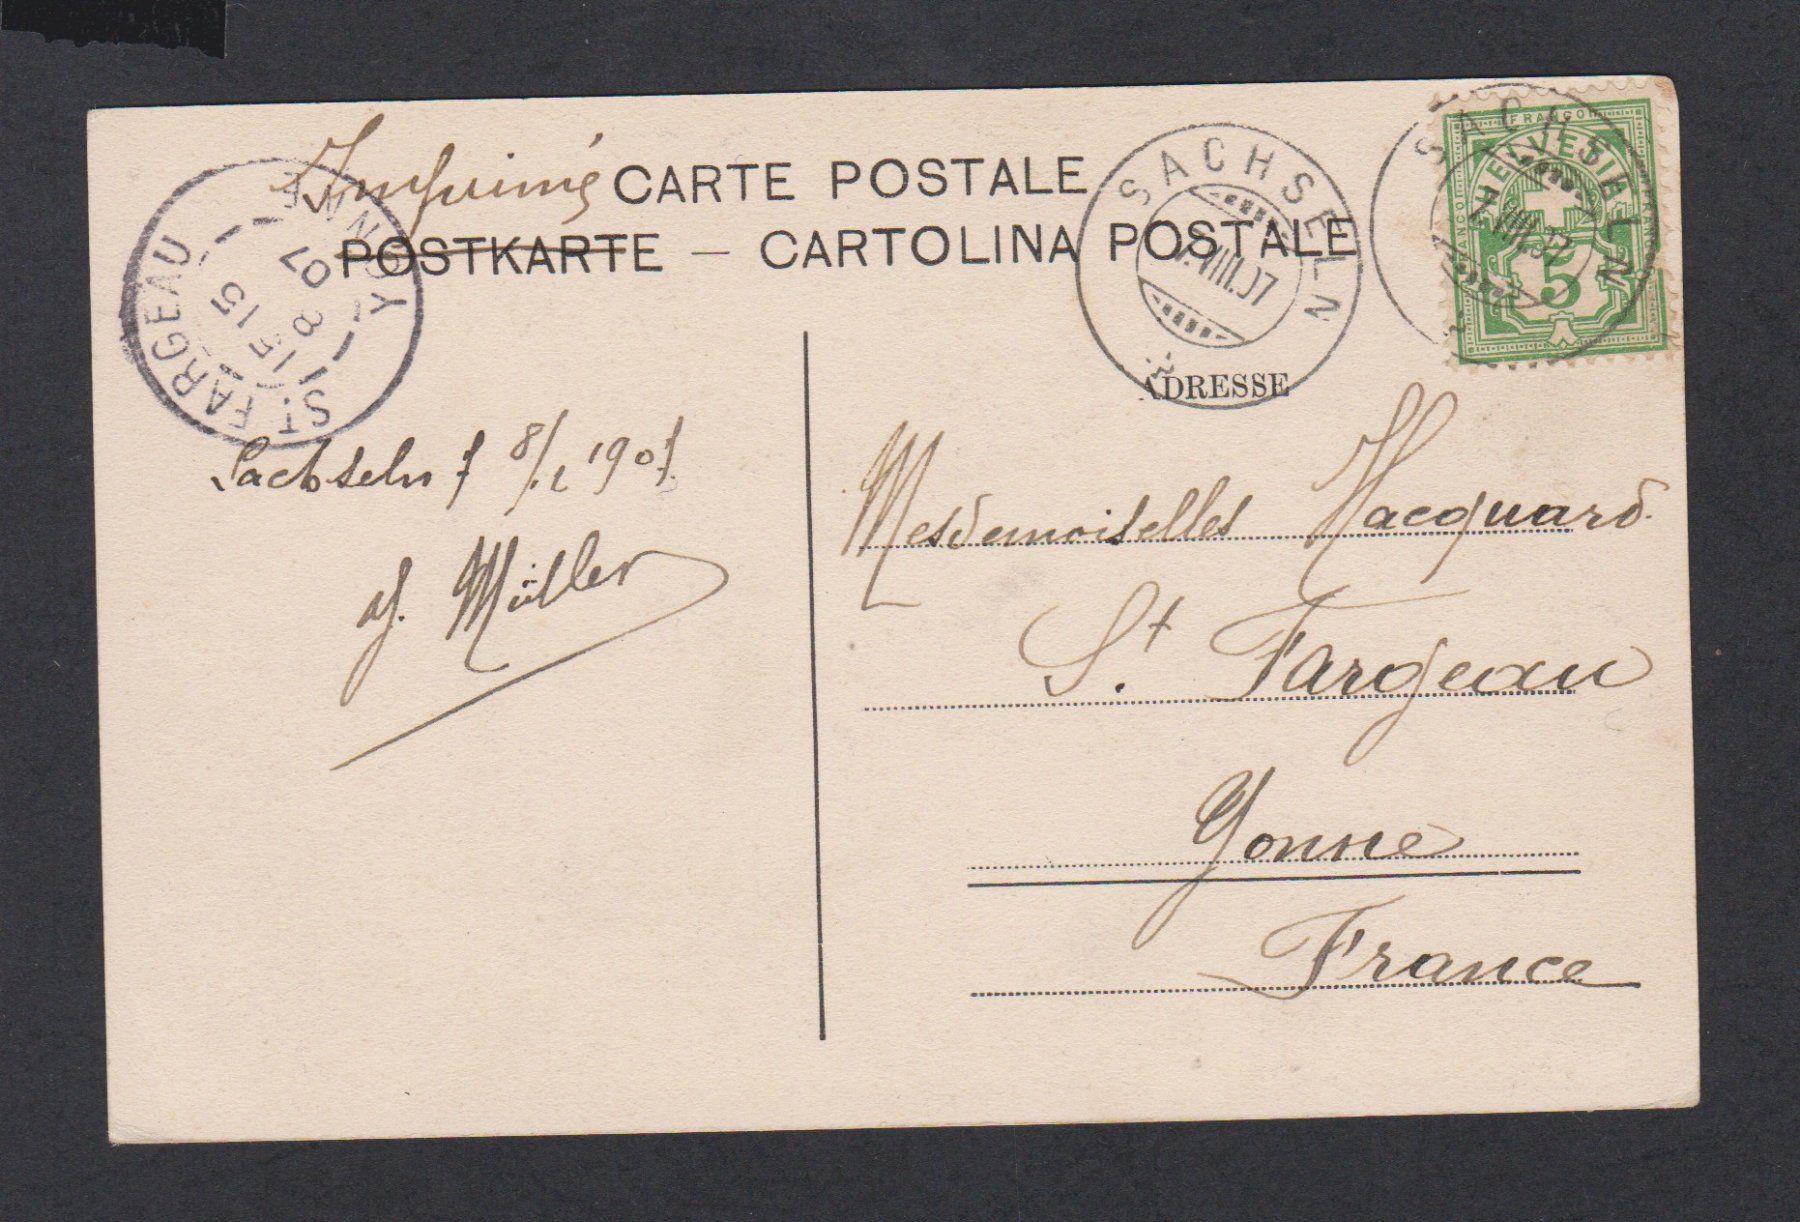 Imprimé CARTE POSTALE
POSTKARTE — CARTOLINA POSTALE
ST. FARGEAU
YONNE
15 15
8
07
SACHSELN
VIII.07
SACHSELN
7.VIII.07
FRANCO
HELVETIA
FRANCO
FRANCO
5
ADRESSE
Sachseln 7 8/. 1907.
Müller
Mesdemoiselles Hacquard.
St. Fargeau
Yonne
France